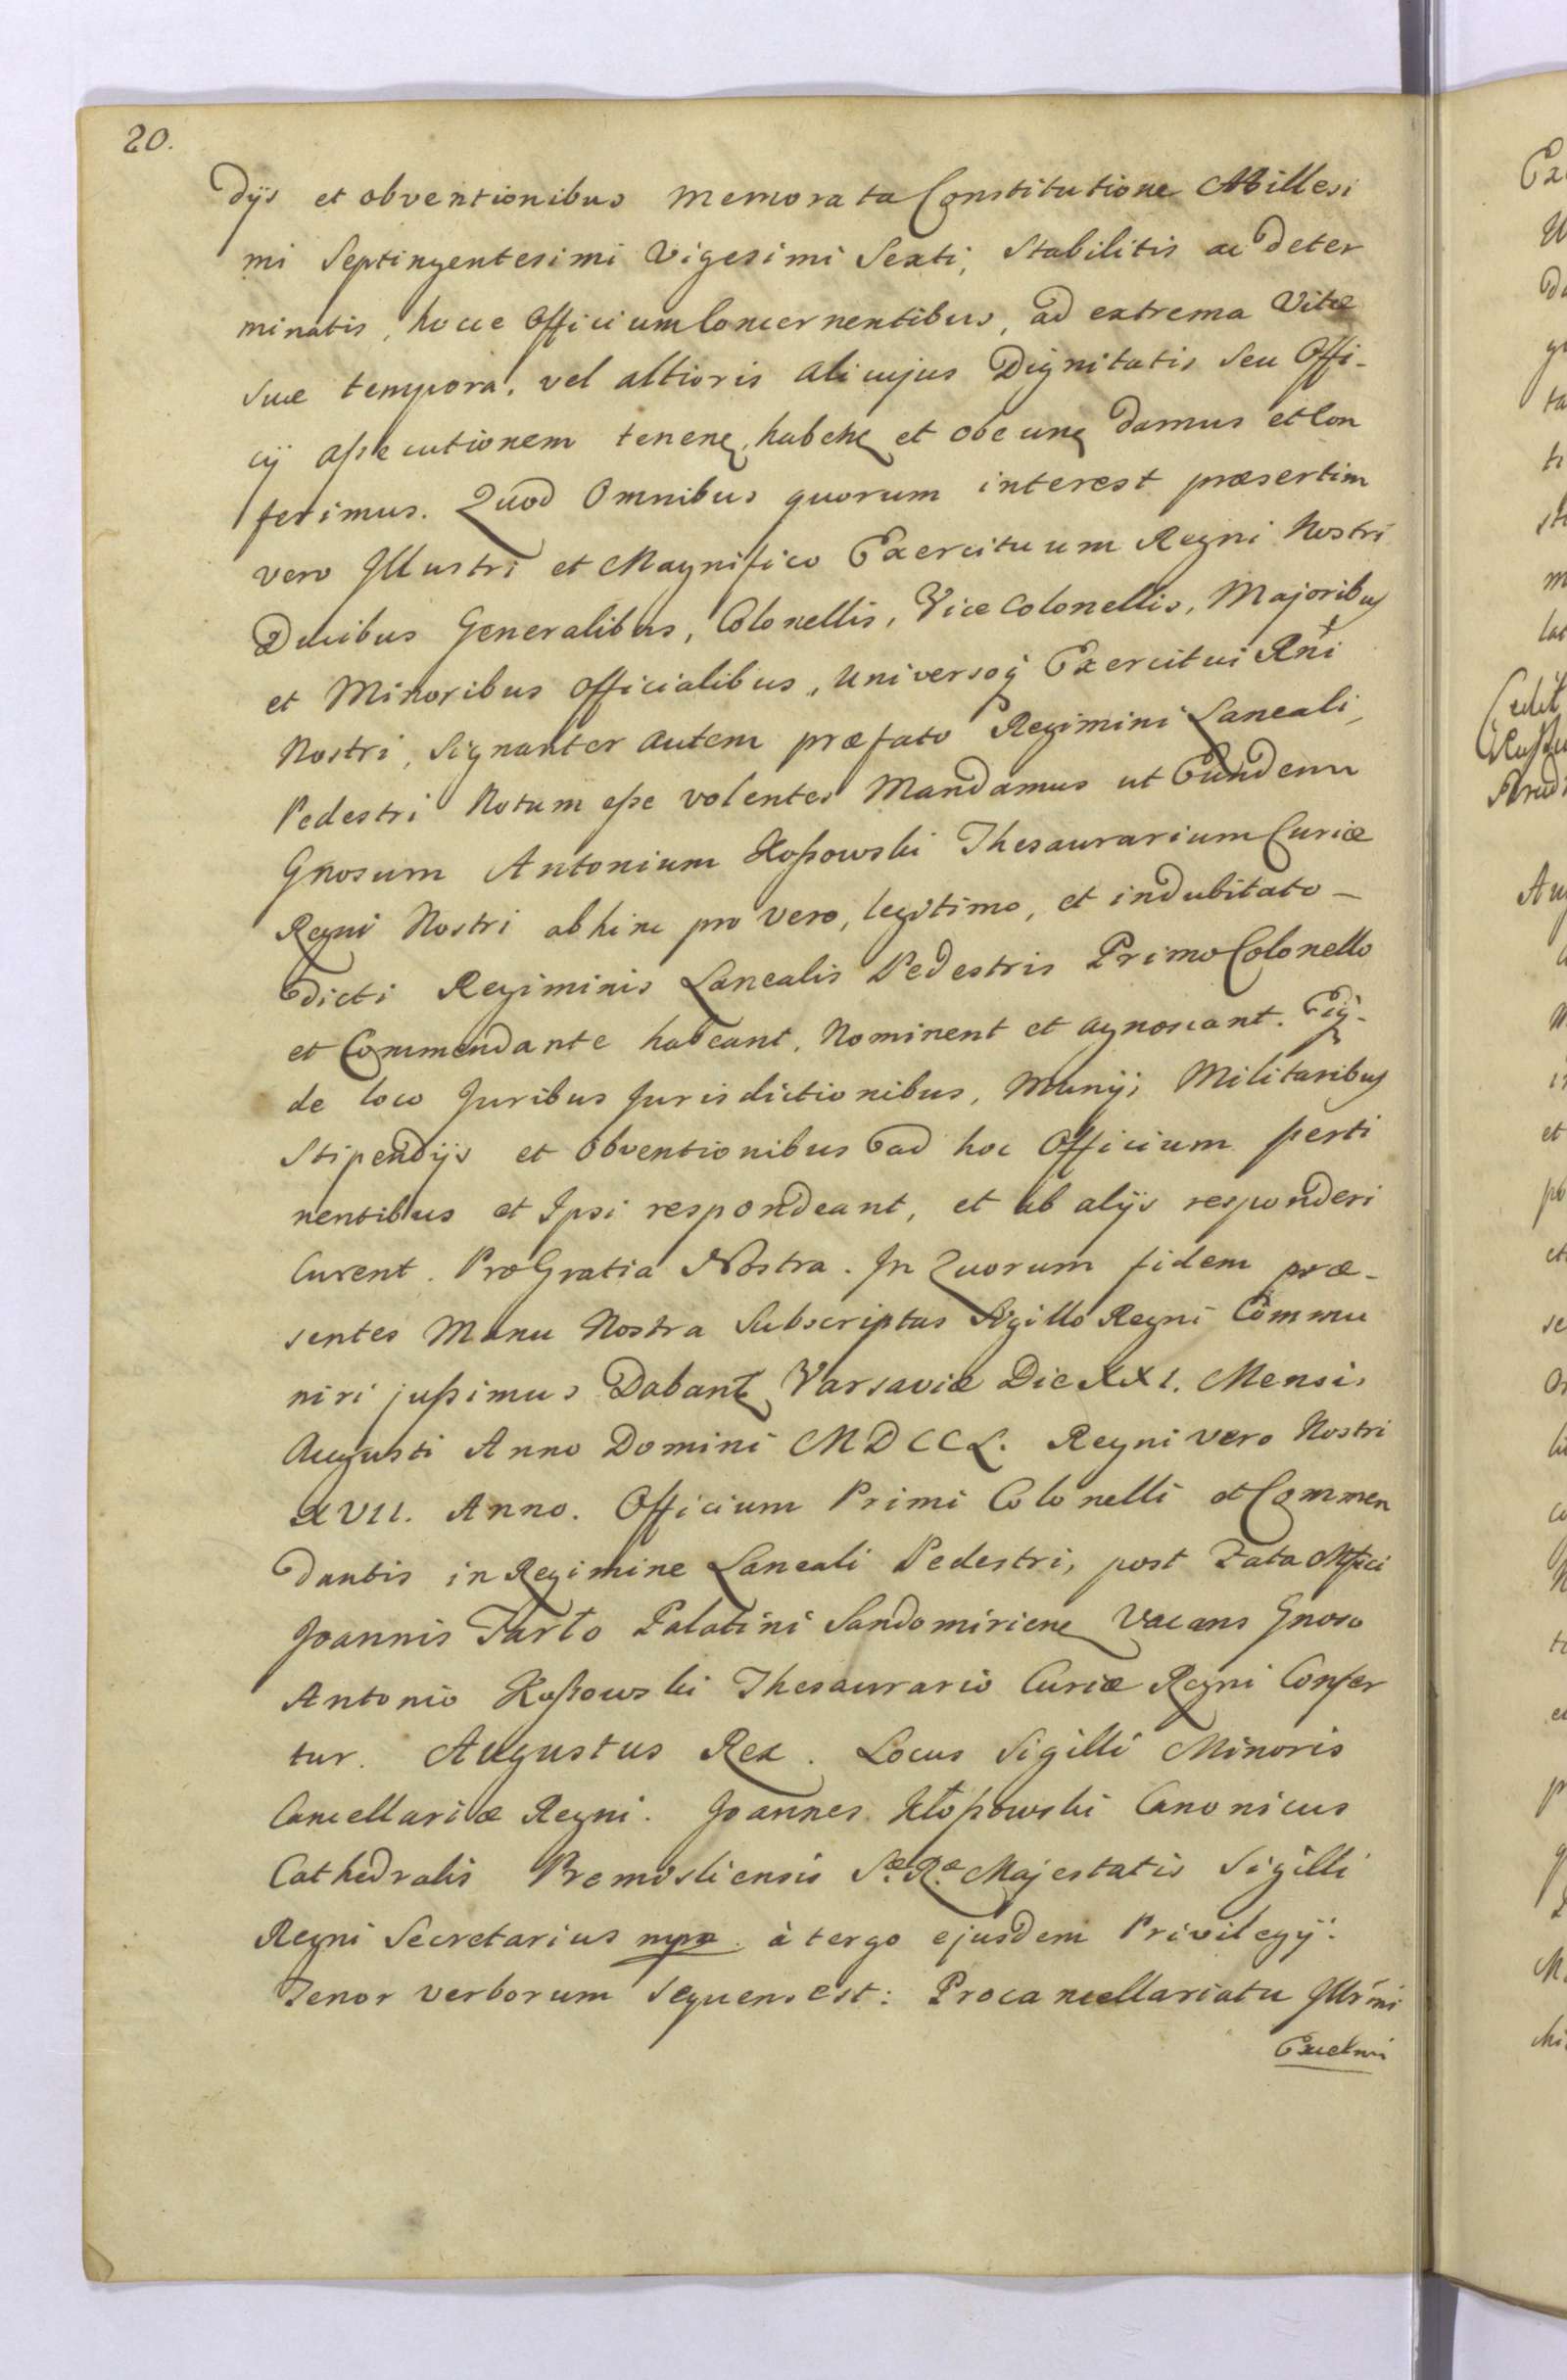 20.
dijs et obventionibus memorata Constitutione Millesi
mi Septingentesimi Vigesimi Sexti, Stabilitis ac deter
minatis, hocce Officium Concernentibus, ad extrema Vitæ
suæ tempora, vel altioris alicujus Dignitatis seu Offi-
cij assecutionem tenenḍ, habenḍ et obeunḍ damus et Con
ferimus. Quod Omnibus quorum interest præsertim
vero Illustri et Magnifico Exercituum Regni Nostri
Ducibus Generalibus, Colonellis, Vice Colonellis, Majoribus
et Minoribus Officialibus, Universoq Exercitui Rni
Nostri, Signanter autem præfato Regimini Laneali,
Pedestri Notum esse volentes Mandamus ut Eundem
Gnosum Antonium Kossowski Thesaurarium Curiæ
Regni Nostri abhinc pro vero, legitimo, et indubitato –
dicti Regiminis Lanealis Pedestris Primo Colonello
et Commendante habeant, Nominent et agnoscant. Eiq-
de loco Juribus Jurisdictionibus, Munijs Militaribus
Stipendijs et Obventionibus ad hoc Officium perti
nentibus et Ipsi respondeant, et ab alijs responderi
Curent. Pro Gratia Nostra. In Quorum fidem præ-
sentes Manu Nostra Subscriptas Sigillo Regni Commu
niri jussimus Dabant Varsaviæ Die XXI. Mensis
Augusti Anno Domini MDCCL. Regni vero Nostri
XVII. Anno. Officium Primi Colonelli et Commen
dantis in Regimine Laneali Pedestri, post Fata Mfici
Joannis Tarło Palatini Sandomirienẹ Vacans Gnoso
Antonio Kossowski Thesaurario Curiæ Regni Confer
tur. Augustus Rex. Locus Sigilli Minoris
Cancellariæ Regni. Joannes Kłossowski Canonicus
Cathedralis Premisliensis Sæ Ræ Majestatis Sigilli
Regni Secretarius mpx. à tergo ejusdem Privilegij.
Tenor verborum sequens est: Procancellariatu Illrmi
Excelmi